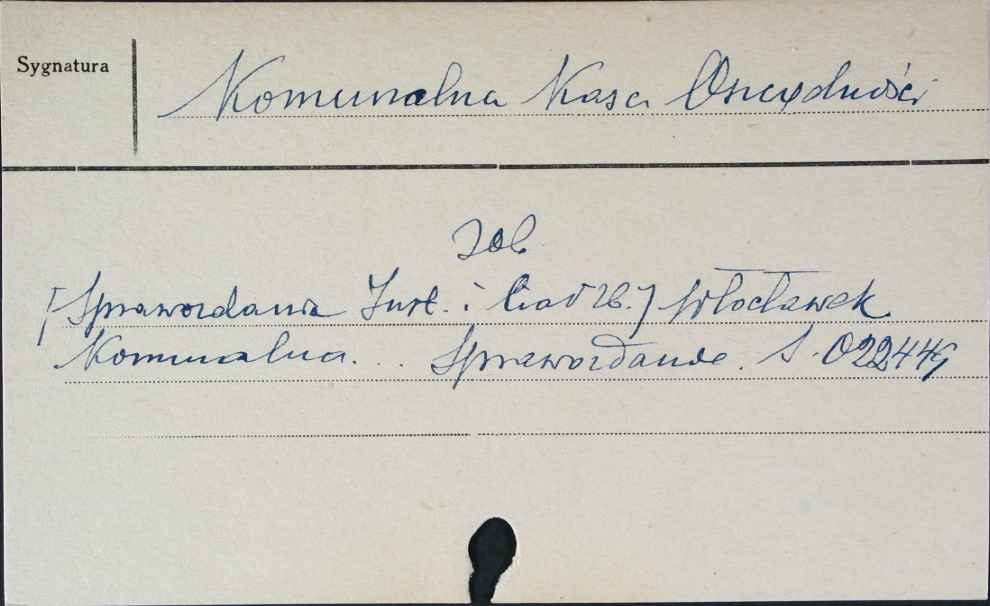 Sygnatura
Komunalna Kasa Oszczędności
zob
[Sprawozdania Inst. i Citat Zb.] Włocławek
Komunalna . . Sprawozdanie. S. 022449